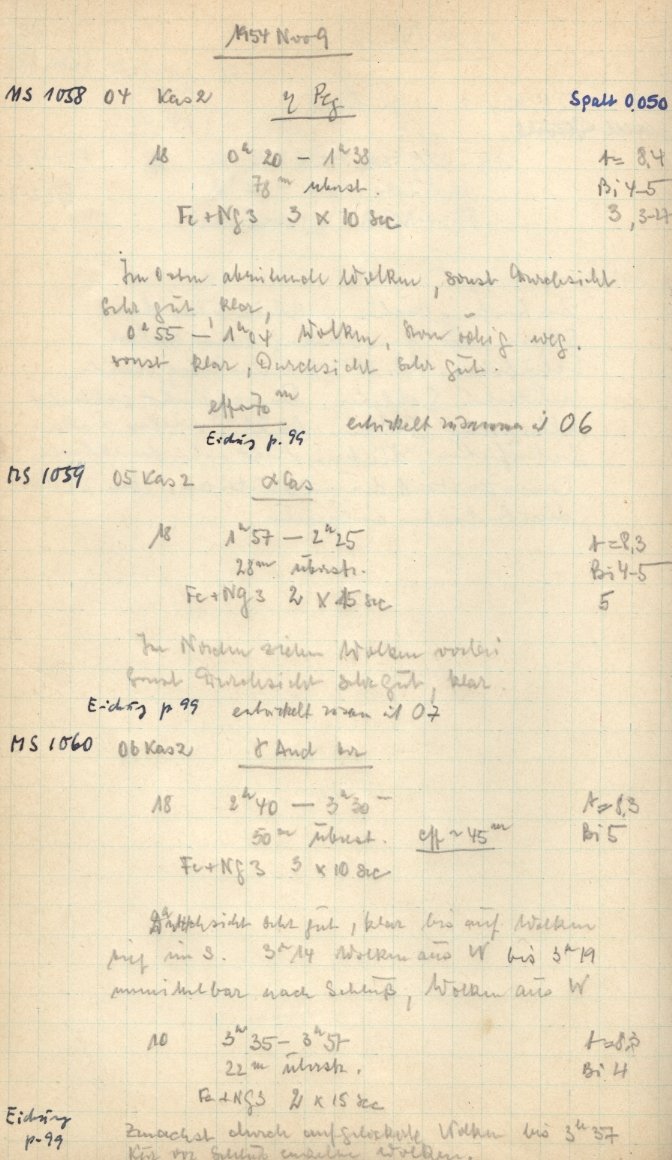 1954 Nov 9
MS 1058 04 Kas 2 η Peg Spalt 0.050
18 0ʰ20 – 1ʰ38 t = 8,4
78ᵐ überst. Bi 4-5
Fe+Ng 3 3 x 10 sec 3
Im Osten abziehende Wolken, sonst Durchsicht
sehr gut, klar,
0ʰ55 – 1ʰ04 Wolken, weg.
sonst klar, Durchsicht sehr gut.
eff 70ᵐ
Eichung p. 99 entwickelt zusammen mit 06
MS 1059 05 Kas 2 α Cas
18 1ʰ57 – 2ʰ25 t = 8,3
28ᵐ überstr. Bi 4-5
Fe+Ng 3 2 x 15 sec 5
Im Norden ziehen Wolken vorbei
sonst Durchsicht sehr gut, klar.
Eichung p 99 entwickelt zusam mit 07
MS 1060 06 Kas 2 γ And
18 2ʰ40 – 3ʰ30 t = 8,3
50ᵐ überst. eff ~ 45ᵐ Bi 5
Fe+Ng 3 3 x 10 sec
Durchsicht sehr gut, klar bis auf Wolken
tief im S. 3ʰ14 Wolken aus W bis 3ʰ19
unmittelbar nach Schluß, Wolken aus W
10 3ʰ35 – 3ʰ57 t = 8,3
22ᵐ überstr. Bi 4
Fe+Ng 3 2 x 15 sec
Eichung
p. 99
Zunächst durch aufgelockerte Wolken bis 3ʰ37
Kurz vor Schluß einzelne Wolken.